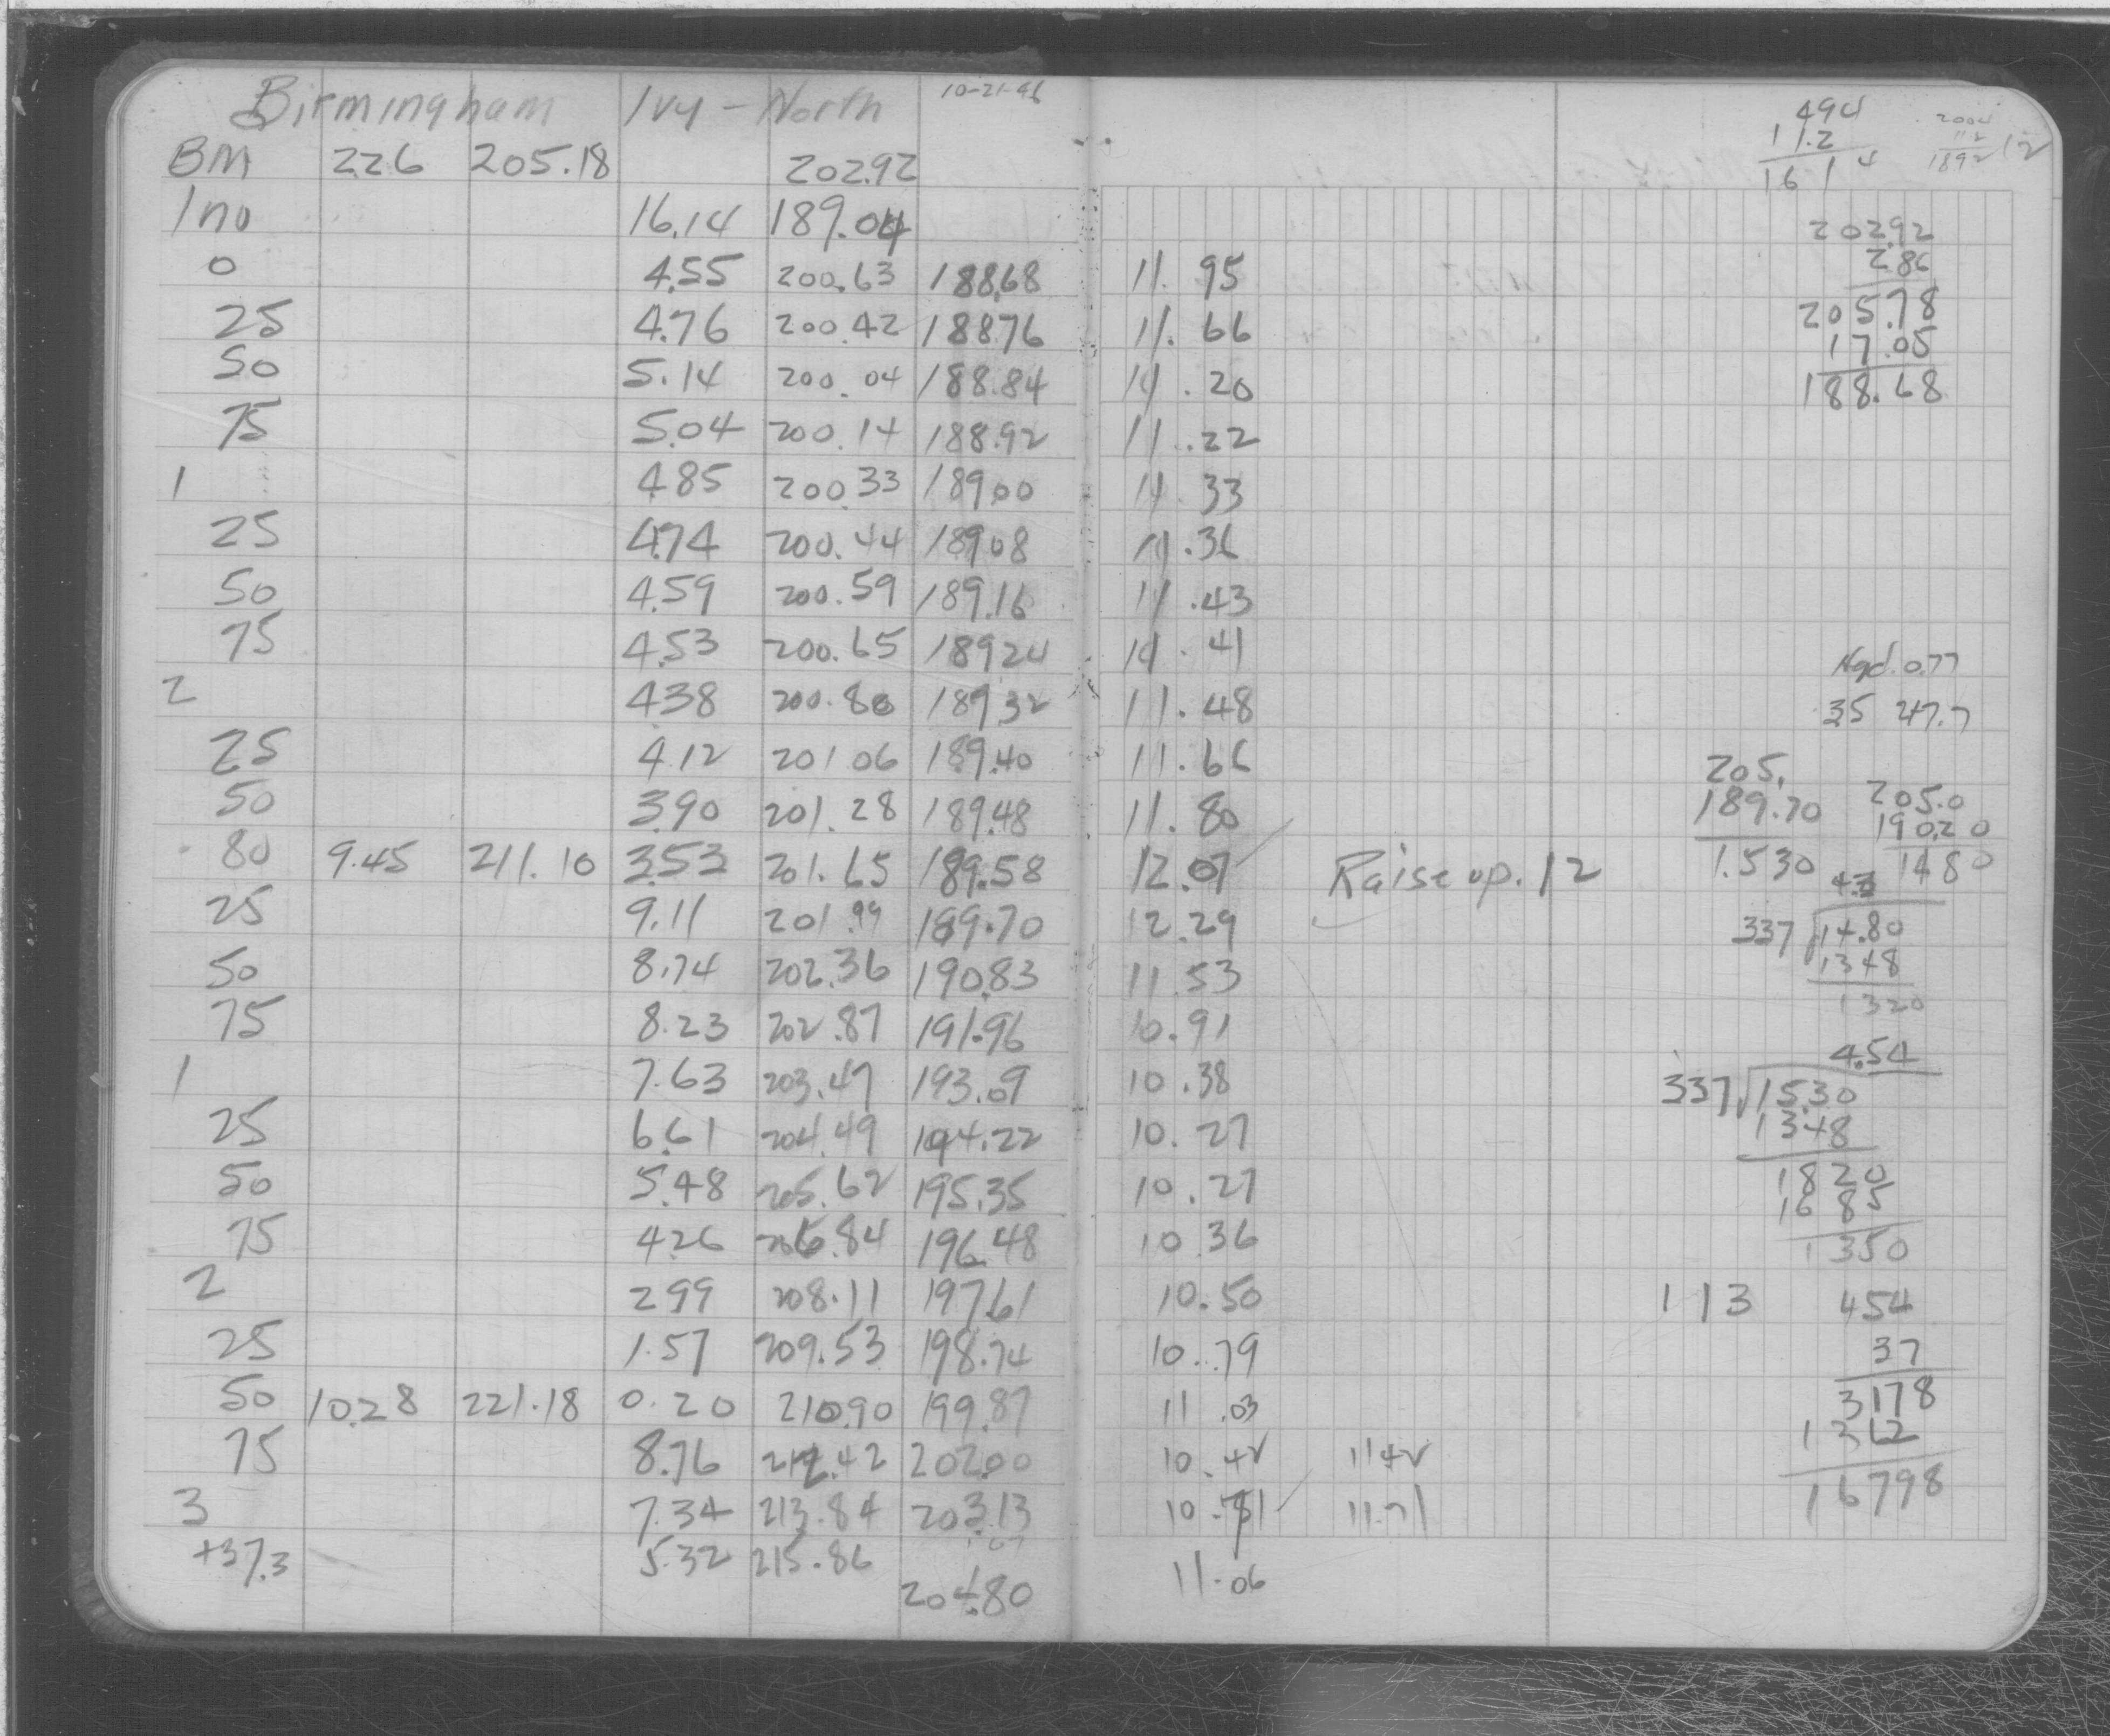 Birmingham Ivy - North 10-21-46
BM 2.26 205.18 202.92
Ino 16.14 189.04
0 4.55 200.63 188.68 11.95
25 4.76 200.42 188.76 11.66
50 5.14 200.04 188.84 11.20
75 5.04 200.14 188.92 11.22
1 4.85 200.33 189.00 11.33
25 4.74 200.44 189.08 11.36
50 4.59 200.59 189.16 11.43
75 4.53 200.65 189.24 11.41
2 4.38 200.80 189.32 11.48
25 4.12 201.06 189.40 11.66
50 3.90 201.28 189.48 11.80
80 9.45 211.10 3.53 201.65 189.58 12.07 Raise up .12
25 9.11 201.99 189.70 12.29
50 8.74 202.36 190.83 11.53
75 8.23 202.87 191.96 10.91
1 7.63 203.47 193.09 10.38
25 6.61 204.49 194.22 10.27
50 5.48 205.62 195.35 10.27
75 4.26 206.84 196.48 10.36
2 2.99 208.11 197.61 10.50
25 1.57 209.53 198.74 10.79
50 10.28 221.18 0.20 210.90 199.87 11.03
75 8.76 212.42 202.00 10.42 11.42
3 7.34 213.84 203.13 10.71 11.71
+37.3 5.32 215.86
204.80 11.06
494
11.2
161 4
2004
11 2
1892 12
202.92
2.86
205.78
17.05
188.68
Hyd. 0.77
35 47.7
205.
189.70
1.530
205.0
190.20
1480
4.3
337 14.80
1348
1320
4.54
337 15.30
1348
1820
1685
1350
113 454
37
3178
1362
16798